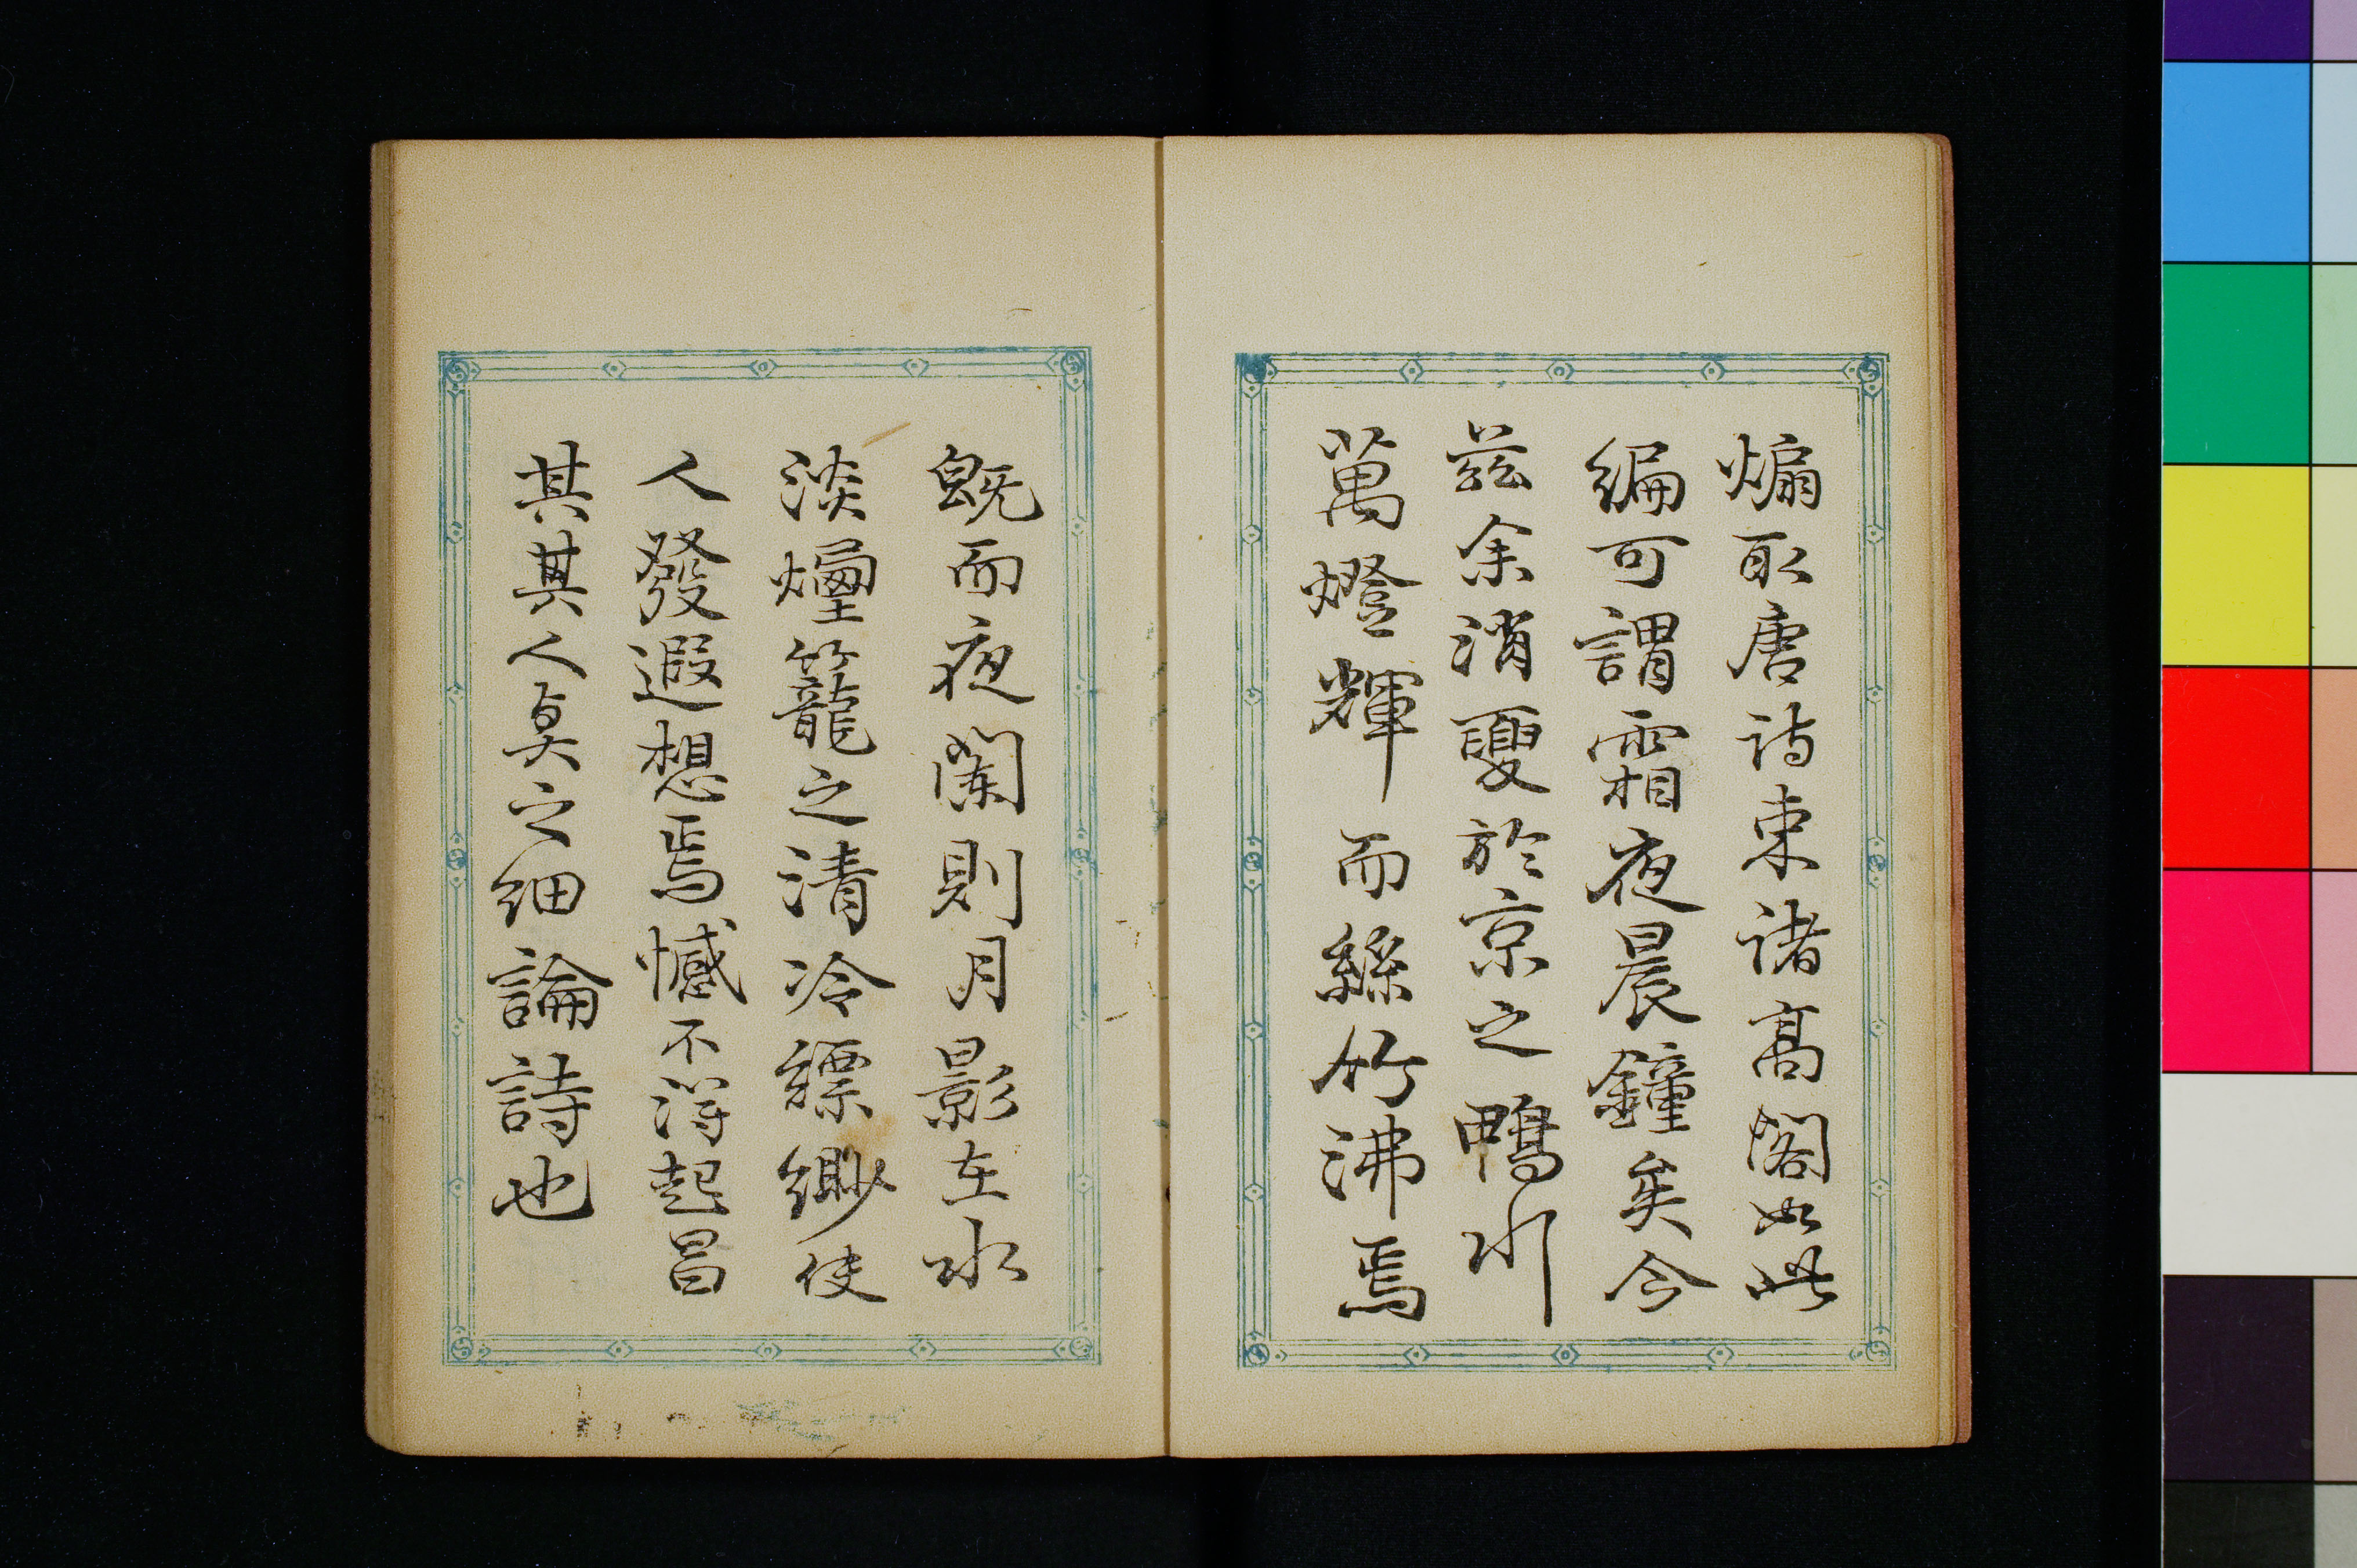 煽取唐詩束諸高閣如此
編可謂霜夜晨鐘矣今
茲余消夏於京之鴨水
萬燈輝而絲竹沸焉
既而夜闌則月影在水
淡煙籠之清冷縹緲使
人發遐想焉憾不得起昌
其其人與之細論詩也